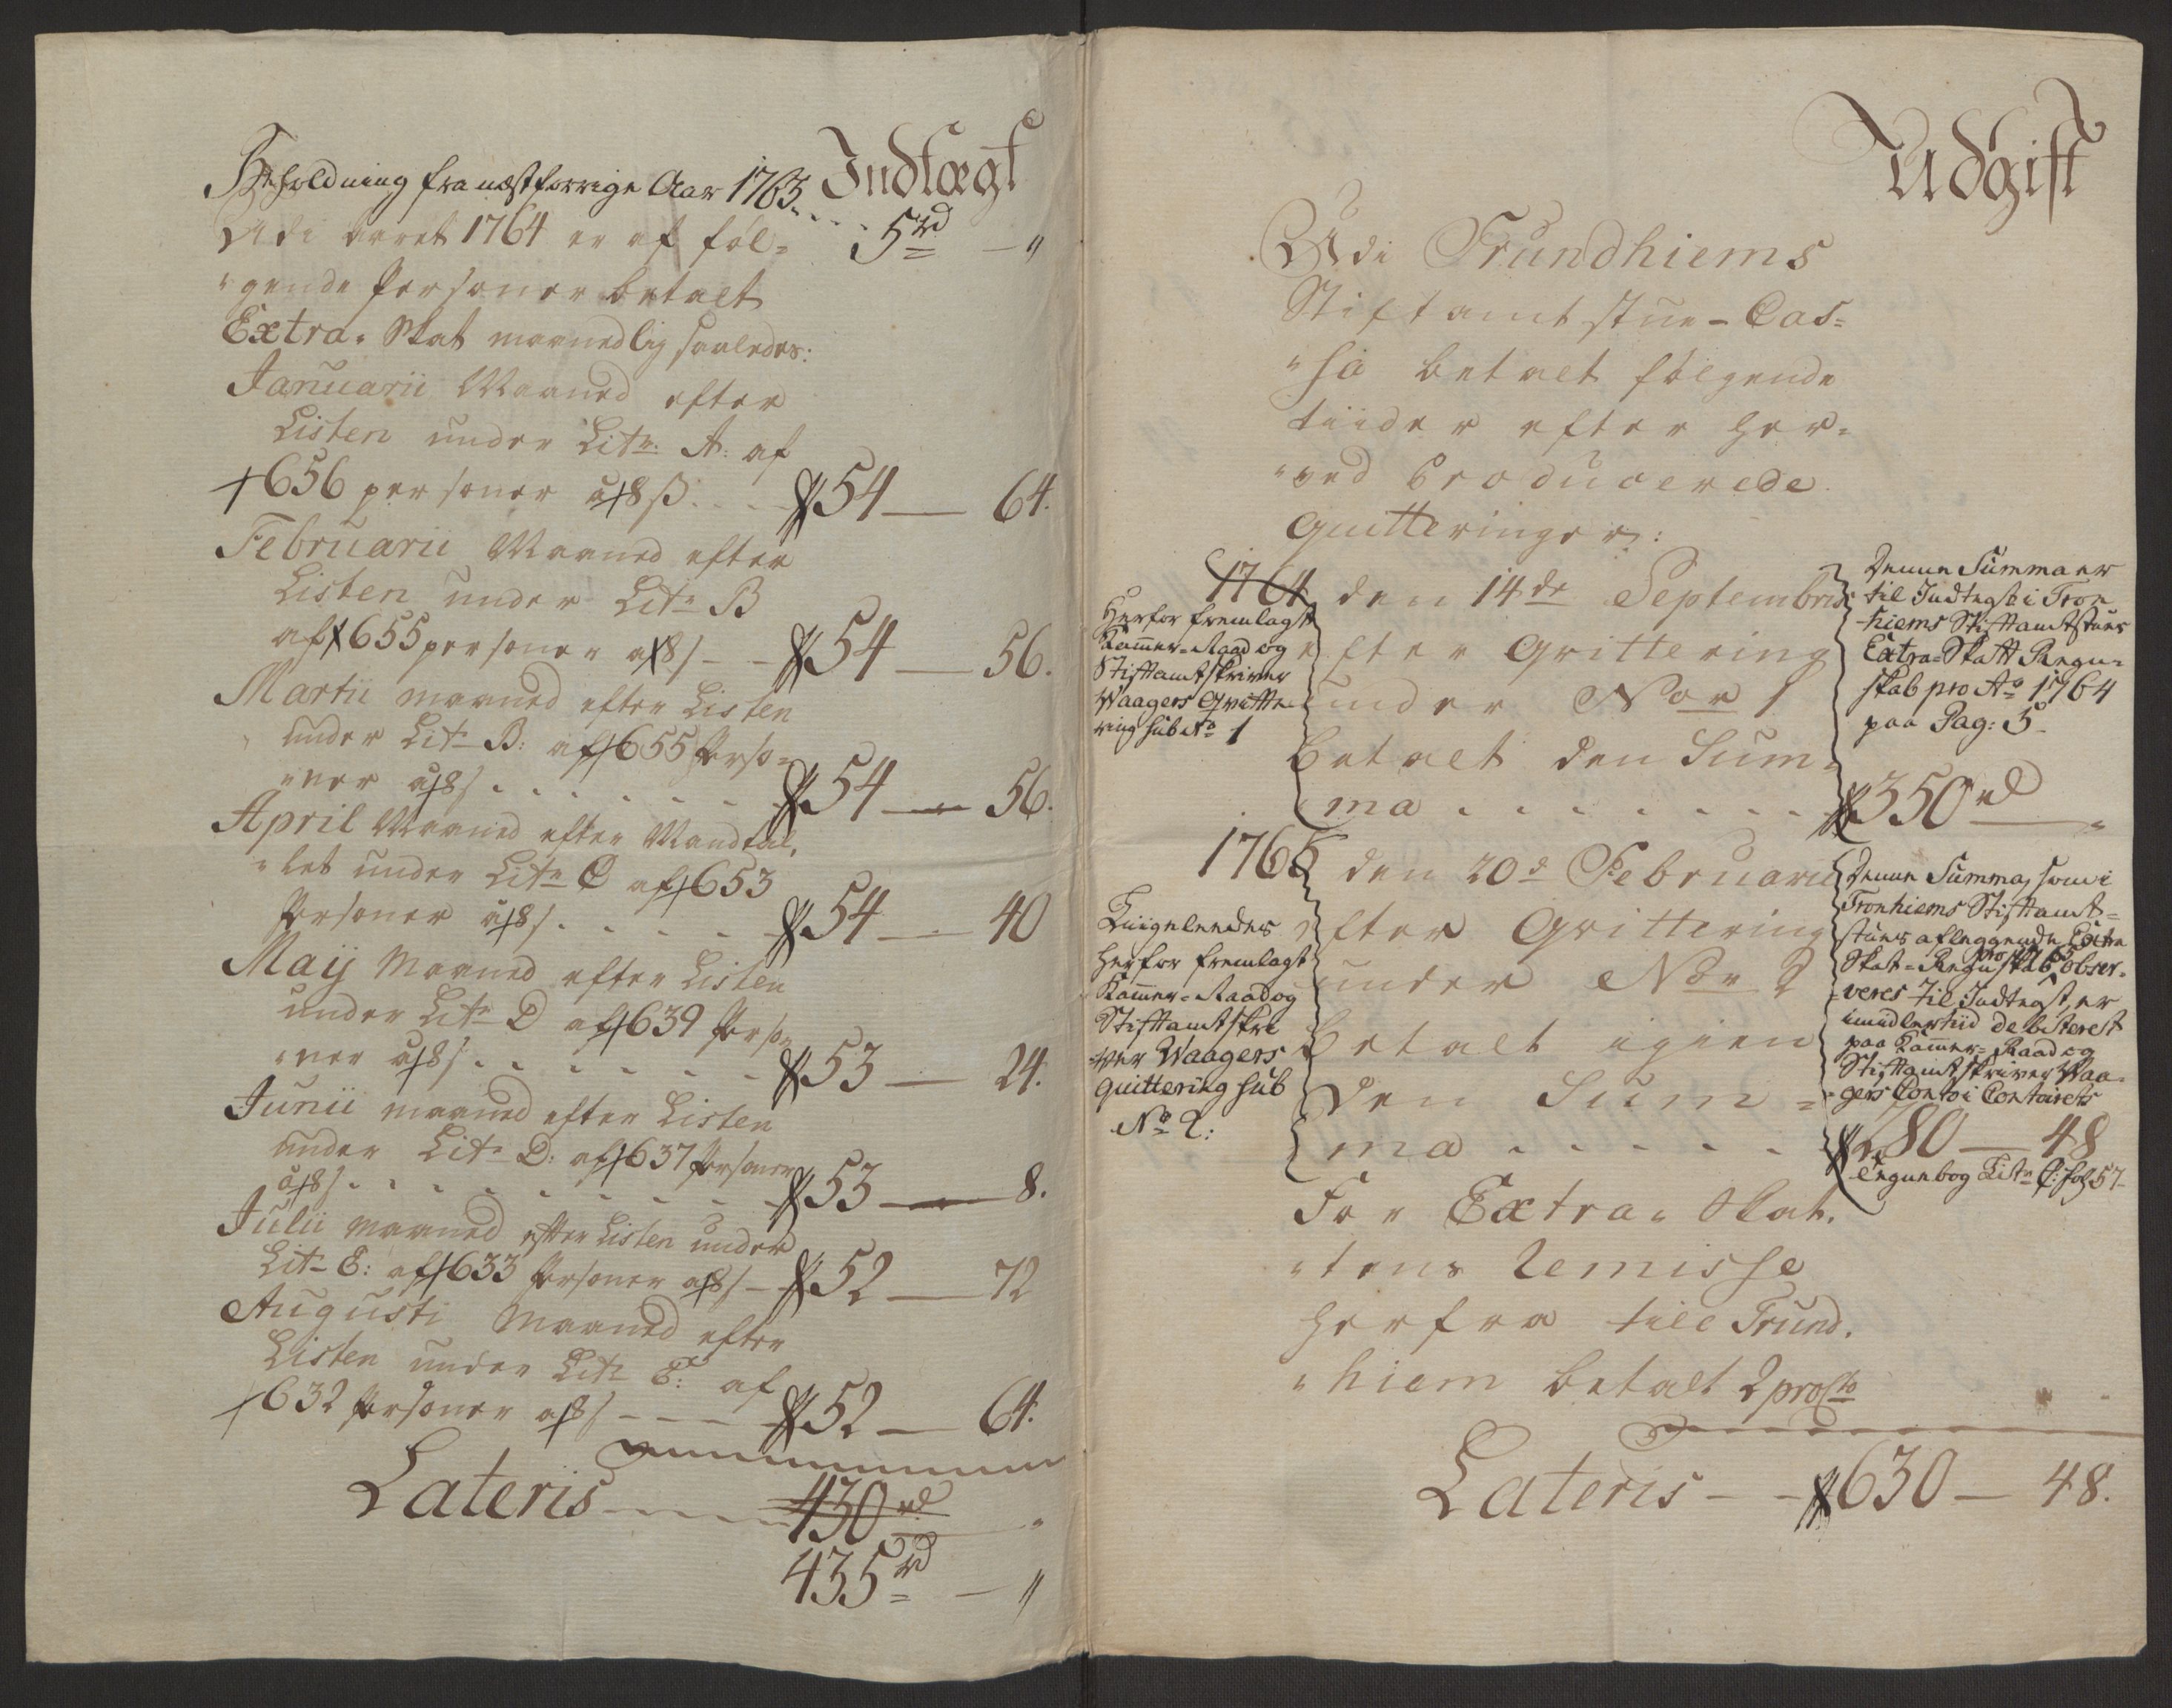 Indtægt
Beholdning fra næstforrige Aar 1763. . . . 5 rd — "
Udi aaret 1764 er af føl-
"gende Personer betalt
Extra- Skat maanedlig saaledes:
Januarii Maaned efter
Listen under Litr: A: af
656 personer a 8 ß. . . . 54 — 64.
Februarii Maaned efter
Listen under Litr B
af 655 personer a 8 ß - - 54 — 56.
Martii maaned efter Listen
under Litr B: af 655 Perso-
"ner a 8 ß . . . . . . . 54 — 56.
April Maaned efter Mandtal,
"let under Litr C af 653
Personer a 8 ß . . . . . 54 — 40
Maij Maaned efter Listen
under Litr D af 639 Perso-
"ner a 8 ß . . . . . . . 53 — 24.
Junii maaned efter Listen
under Litr D: af 637 Personer
a 8 ß . . . . . . . . . 53 — 8.
Julii maaned efter Listen under
Litr E: af 633 Personer a 8 ß - 52 — 72
Augusti Maaned efter
Listen under Litr E: af
632 Personer a 8 ß - - - - 52 — 64.
Lateris - - - - 430 rd "
435 rd — "
Udgift
Udi Trundhiems
Stiftamtstue - Cas-
"sa betalt følgende
tiider efter her-
"ved Producerede
Quitteringer:
1764 den 14de Septembris
efter Qvittering
under Nor 1
betalt den Sum-
ma . . . . . . . 350 rd — "
Herfor fremlagt
Kammer-Raad og
Stiftamtskriver
Waagers Qvitte-
ring sub No 1
Denne Summa er
til Indtegt i Tron
-hiems Stiftamtstues
Extra-Skatt Regn-
skab pro Ao 1764
paa Pag: 5.
1765 den 20de Februarii
efter Qvittering
under Nor 2
betalt igien
den Sum-
ma . . . . . 280 — 48
Liigeleedes
herfor fremlagt
Kammer-Raad og
Stiftamtskri
-ver Waagers
quittering sub
No 2:
Denne Summa, som i
Tronhiems Stiftamt-
stues aflæggende Extra
Skat-Regnskab pro 1765 obser-
-veres til Indtegt, er
imidlertiid debiterest
paa Kammer-Raad og
Stiftamtskriver Waa-
gers Conto i Contoirets
Regnebog Litr C: fol 57-
For Extra- Skat,
"tens Remisse
herfra till Trund,
"hiem betalt 2 pro Cto
Lateris - - 630 — 48.